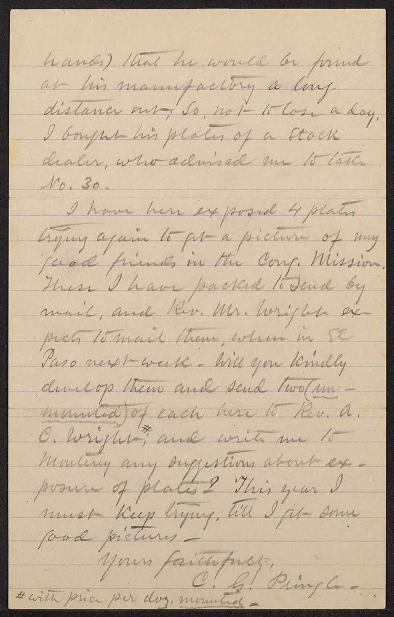 hands) that he would be found
at his manufactory a long
distance out, So, not to lose a day,
I bought his plates of a Stock
dealer, who advised me to take
No. 30.
I have here exposed 4 plates
trying again to get a picture of my
good friends in the Cong. Mission.
These I have packed to send by
mail, and Rev. Mr. Wright ex-
pects to mail them, when in El
Paso next week - Will you kindly
develop them and send two (un-
mounted) of each here to Rev. A.
C. Wright,# and write me to
Monterey any suggestions about ex-
posure of plates? This year I
must keep trying, till I get some
good pictures -
Yours faithfully,
C. G. Pringle -
# with price per doz. mounted -